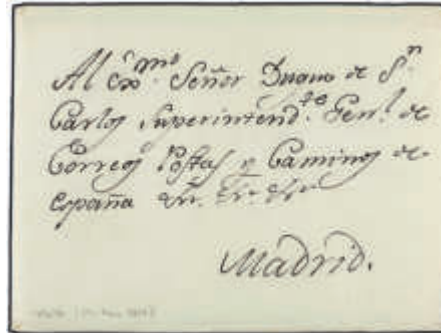 Al Exmo. Señor Duque de Sn.
Carlos Superintendte. Genl. de
Correos Postas y Caminos de
españa &a. &a. &a.
Madrid.